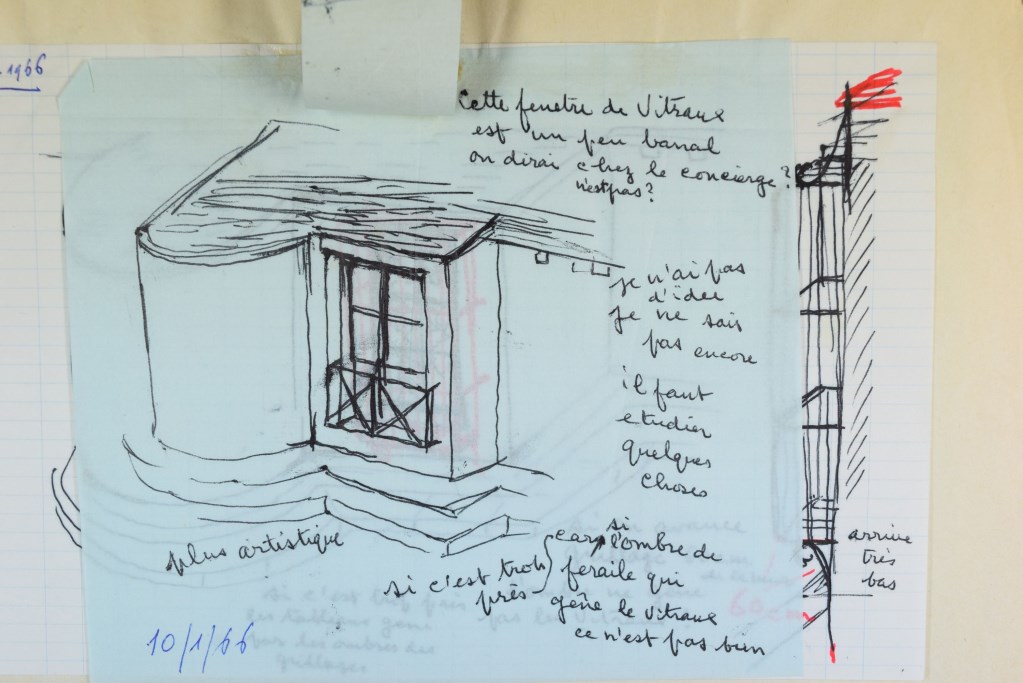 1966
Cette fenetre de Vitraux
est un peu banal
on dirai chez le concierge?
n'est pas?
je n'ai pas
d'idee
je ne sais
pas encore
il faut
etudier
quelques
choses
plus artistique
si c'est trots
près
car si l'ombre de
feraile qui
gêne le vitraux
ce n'est pas bien
arrive
très
bas
60cm
si c'est trop près
les tableaux gene
par les ombres des
grillages
10/1/66